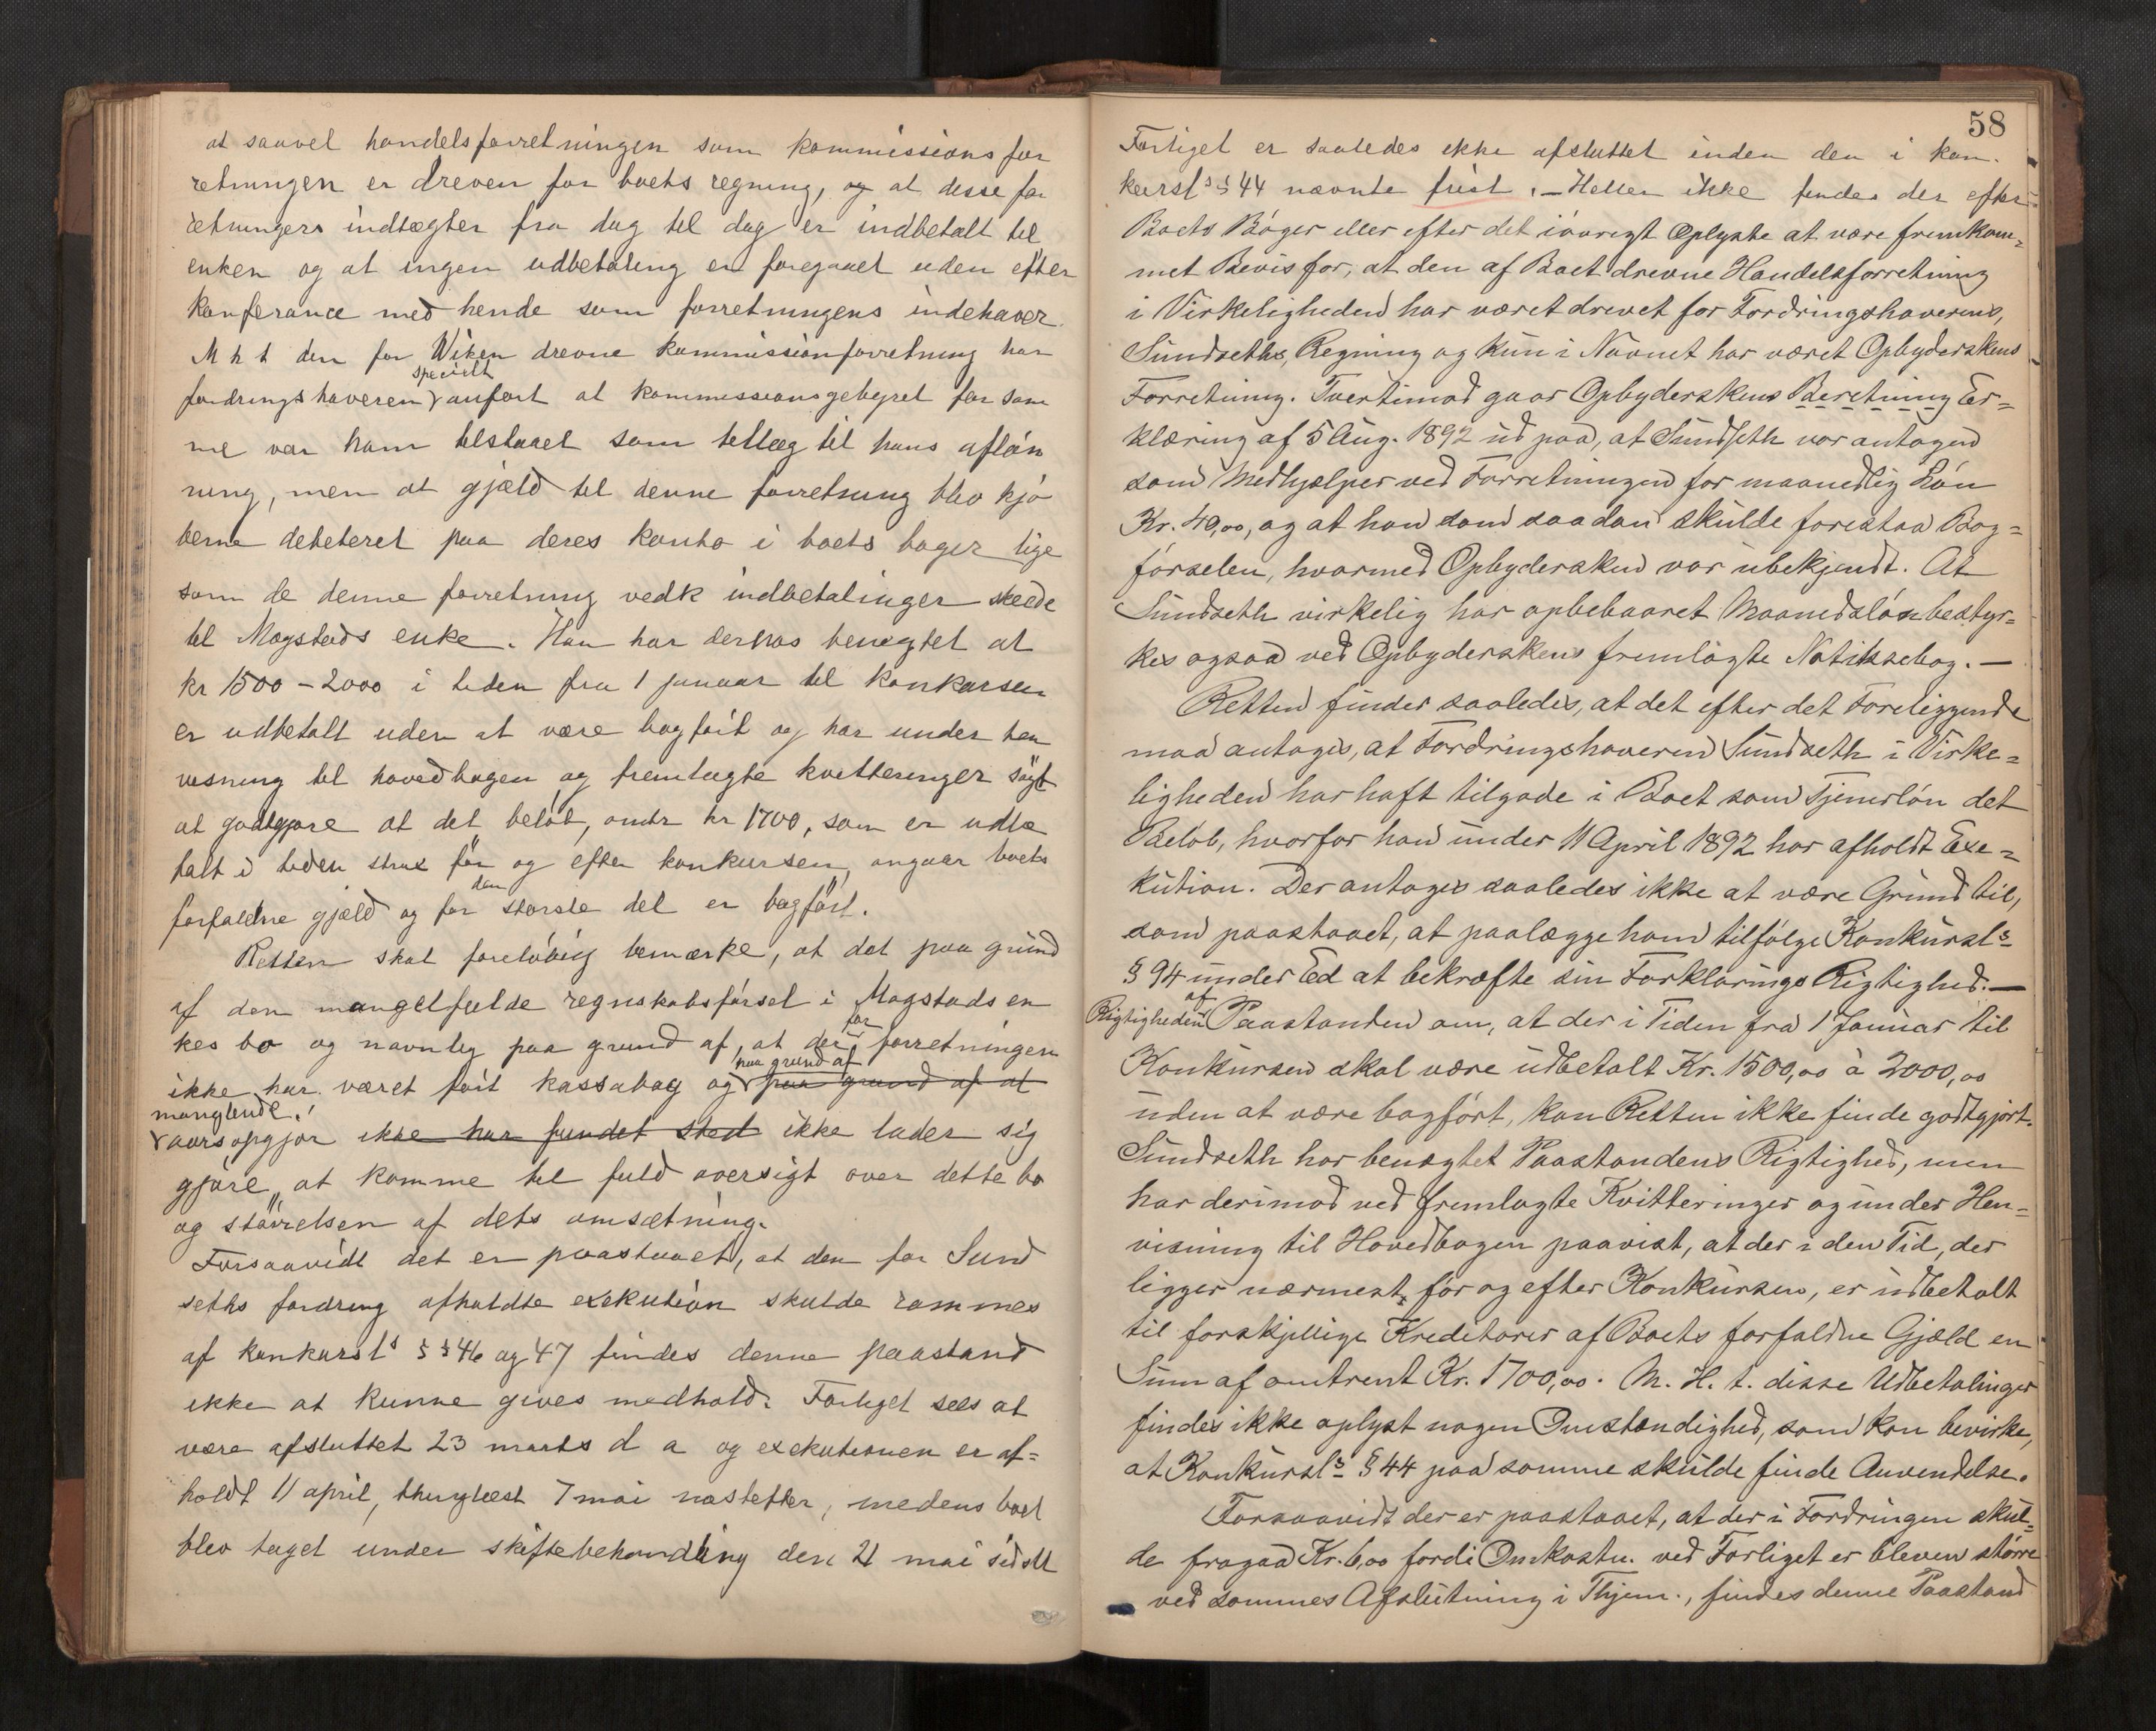 at saavel handelsforretningen som kommissionsfor
retningen er dreven for boets regning, og at disse for
retningers indtægter fra dag til dag er indbetalt til
enken og at ingen udbetaling er foregaaet uden efter
konferance med hende som forretningens indehaver.
M h t den for Wiken drevne kommissionsforretning har
fordringshaveren specielt anført at kommissionsgebyret for sam
me var ham tilstaaet som tillæg til hans afløn
ning, men at gjæld til denne forretning blev kjø
berne debeteret paa deres konto i boets bøger lige
som de denne forretning vedk indbetalinger skeede
til Mogstads enke. Han har derhos benegtet at
kr 1500 - 2000 i tiden fra 1 januar til konkursen
er udbetalt uden at være bogført og har under hen
visning til hovedbogen og fremlagte kvitteringer søgt
at godtgjøre at det beløb, omtr kr 1700, som er udbe
talt i tiden strax før og efter konkursen, angaar boets
forfaldne gjæld og for den største del er bogført.
Retten skal foreløbig bemærke, at det paa grund
af den mangelfulde regnskabsførsel i Mogstads en
kes bo og navnlig paa grund af, at der for forretningen
ikke har været ført kassabog og paa grund af paa grund af at
manglende aarsopgjør ikke har fundet sted ikke lader sig
gjøre at komme til fuld oversigt over dette bo
og størrelsen af dets omsætning.
Forsaavidt det er paastaaet, at den for Sund
seths fordring afholdte exekution skulde rammes
af konkursls §§ 46 og 47 findes denne paastand
ikke at kunne gives medhold. Forliget sees at
være afsluttet 23 marts d a og exekutionen er af=
holdt 11 april, thinglæst 7 mai næstefter, medens boet
blev taget under skiftebehandling den 21 mai sidstl
58
Forliget er saaledes ikke afsluttet inden den i kon-
kursls § 44 nævnte frist. - Heller ikke findes der efter
Boets Bøger eller efter det iøvrigt Oplyste at være fremkom=
met Bevis for, at den af Boet drevne Handelsforretning
i Virkeligheden har været drevet for Fordringshaverens,
Sundseths, Regning og kun i Navnet har været Opbyderskens
Forretning. Tvertimod gaar Opbyderskens Beretning Er=
klæring af 5 Aug. 1892 ud paa, at Sundseth var antagen
som Medhjælper ved Forretningen for maanedlig Løn
Kr. 40,00, og at han som saadan skulde forestaa Bog=
førselen, hvormed Opbydersken var ubekjendt. At
Sundseth virkelig har oppebaaret Maanedsløn bestyr=
kes ogsaa ved Opbyderskens fremlagte Notitsebog. —
Retten finder saaledes, at det efter det Foreliggende
maa antages, at Fordringshaveren Sundseth i Virke=
ligheden har haft tilgode i Boet som Tjenerløn det
Beløb, hvorfor han under 11 April 1892 har afholdt Exe=
kution. Der antages saaledes ikke at være Grund til,
som paastaaet, at paalægge ham tilfølge Konkursls
§ 94 under Ed at bekræfte sin Forklarings Rigtighed. —
Rigtigheden af Paastanden om, at der i Tiden fra 1 Januar til
Konkursen skal være udbetalt Kr. 1500,00 à 2000,00
uden at være bogført, kan Retten ikke finde godtgjort.
Sundseth har benægtet Paastandens Rigtighed, men
har derimod ved fremlagte Kvitteringer og under Hen=
visning til Hovedbogen paavist, at der i den Tid, der
ligger nærmest før og efter Konkursen, er udbetalt
til forskjellige Kreditorer af Boets forfaldne Gjæld en
Sum af omtrent Kr. 1700,00. M. H. t. disse Udbetalinger
findes ikke oplyst nogen Omstændighed, som kan bevirke,
at Konkursls § 44 paa samme skulde finde Anvendelse.
Forsaavidt der er paastaaet, at der i Fordringen skul=
de fragaa Kr. 6,00 fordi Omkostn. ved Forliget er bleven større
ved sammes Afslutning i Thjem., findes denne Paastand